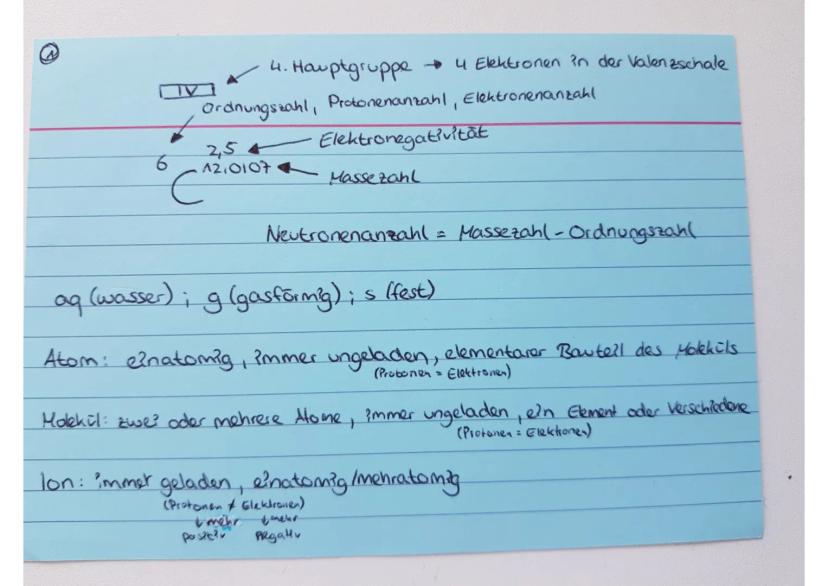 1
4. Hauptgruppe → 4 Elektronen in der Valenzschale
IV
Ordnungszahl, Protonenanzahl, Elektronenanzahl
2,5 ← Elektronegativität
6
12,0107 ← Massezahl
C
Neutronenanzahl = Massezahl - Ordnungszahl
aq (wasser); g (gasförmig); s (fest)
Atom: einatomig, immer ungeladen, elementarer Bauteil des Moleküls
(Protonen = Elektronen)
Molekül: zwei oder mehrere Atome, immer ungeladen, ein Element oder Verschiedene
(Protonen = Elektronen)
Ion: immer geladen, einatomig/mehratomig
(Protonen ≠ Elektronen)
↓ mehr ↓ mehr
positiv negativ